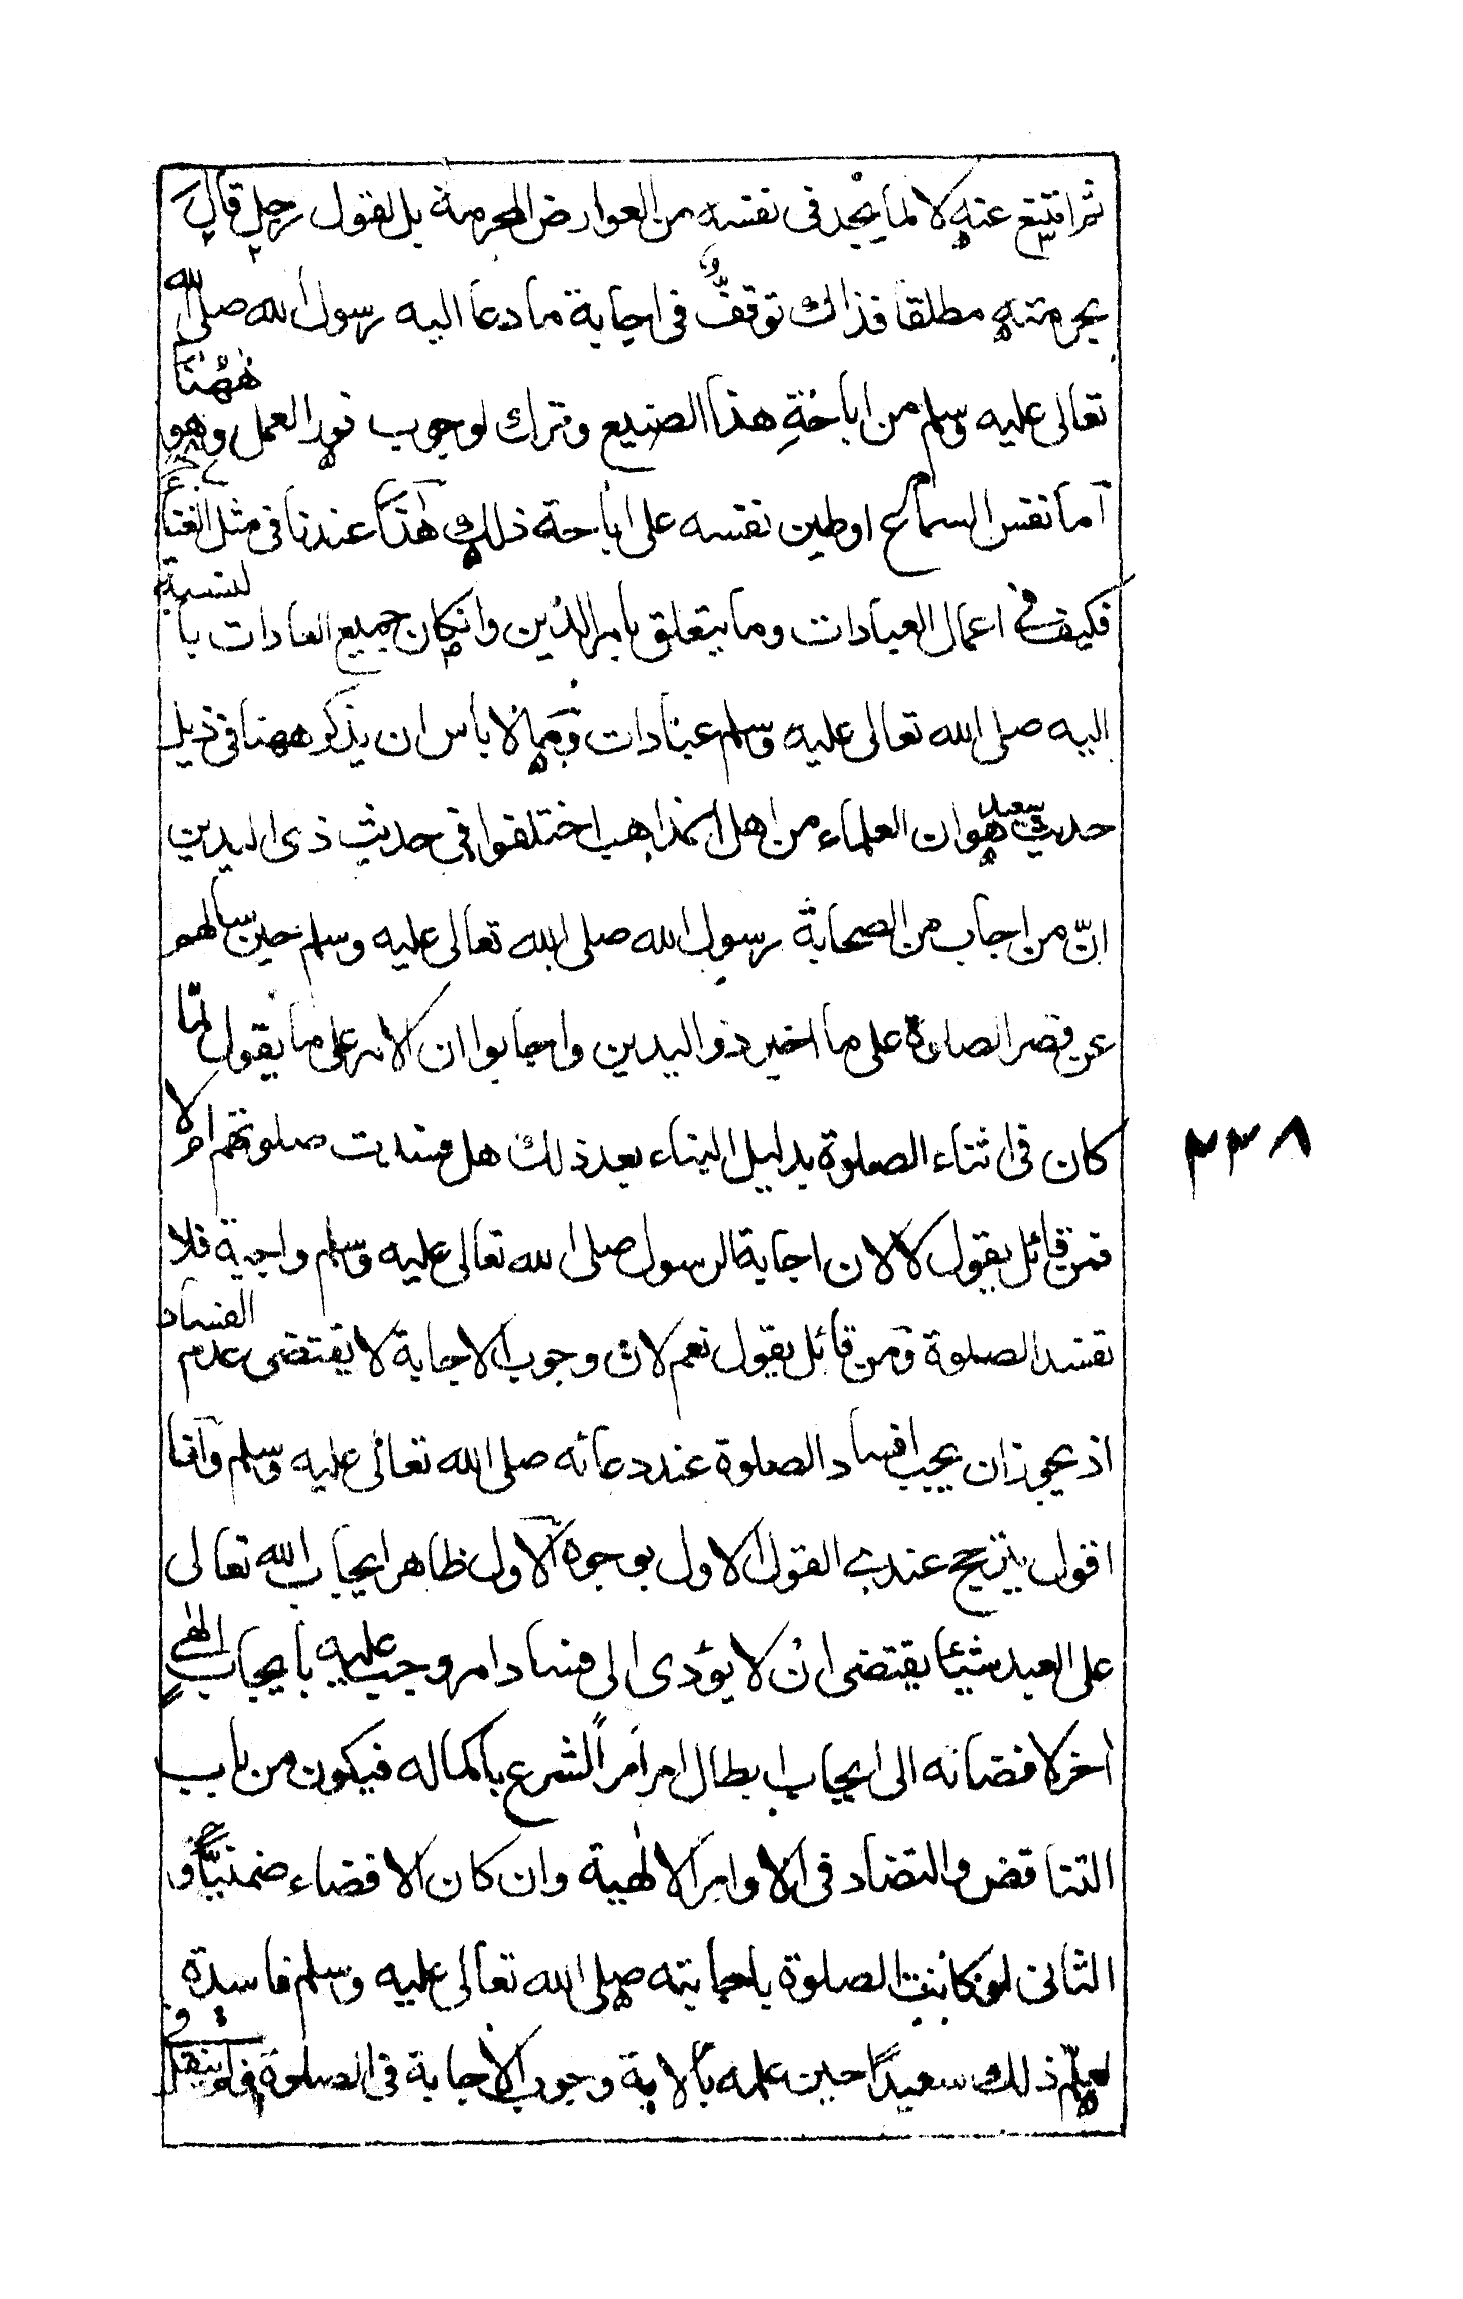 ثم امتنع عنه لا لما يجد فى نفسه من العوارض المحرمة بل لقول رجل قال
بحرمته مطلقا فذاك توقف فى اجابة ما دعا اليه رسول الله صلى الله
تعالى عليه وسلم من اباحة هذا الصنيع وترك لوجوب فور العمل وهو ههنا
اما نفس السماع او طين نفسه على اباحة ذلك هذا عندنا فى مثل الغنا
فكيف فى اعمال العبادات وما يتعلق بامر الدين وان كان جميع العادات بالنسبة
اليه صلى الله تعالى عليه وسلم عبادات ومما لا باس ان يذكر ههنا فى ذيل
حديث سعيد هو ان العلماء من اهل المذاهب اختلفوا فى حديث ذى اليدين
انّ من اجاب من الصحابة رسول الله صلى الله تعالى عليه وسلم حين سالهم
عن قصر الصلوة على ما اخبر ذو اليدين واجابوا ان الامر على ما يقول لمّا
كان فى اثناء الصلوة بدليل البناء بعد ذلك هل فسدت صلوتهم ام لا
فمن قائل يقول لا لان اجابة الرسول صلى الله تعالى عليه وسلم واجبة فلا
تفسد الصلوة ومن قائل يقول نعم لان وجوب الاجابة لا يقتضى عدم الفساد
اذ يجوز ان يجب افساد الصلوة عند دعائه صلى الله تعالى عليه وسلم وانا
اقول يترجح عندى القول الاول بوجوه الاول ظاهر ايجاب الله تعالى
على العبد شيئا يقتضى ان لا يؤدى الى فساد امر وجب عليه بايجاب الهى
اخر لافضائه الى ايجاب ابطال امر امر الشرع باكماله فيكون من باب
التناقض والتضاد فى الاوامر الالهية وان كان الافضاء ضمنيّا و
الثانى لو كانت الصلوة باجابته صلى الله تعالى عليه وسلم فاسدة
لعلّم ذلك سعيدًا حين علمه بالاية وجوب الاجابة فى الصلوة ولم ينقل
٣٣٨